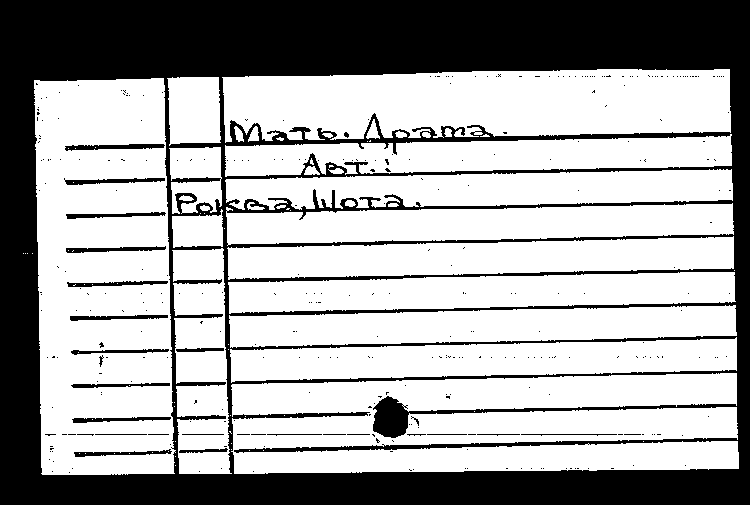 Мать. Драма.
Авт.:
Роква, Шота.